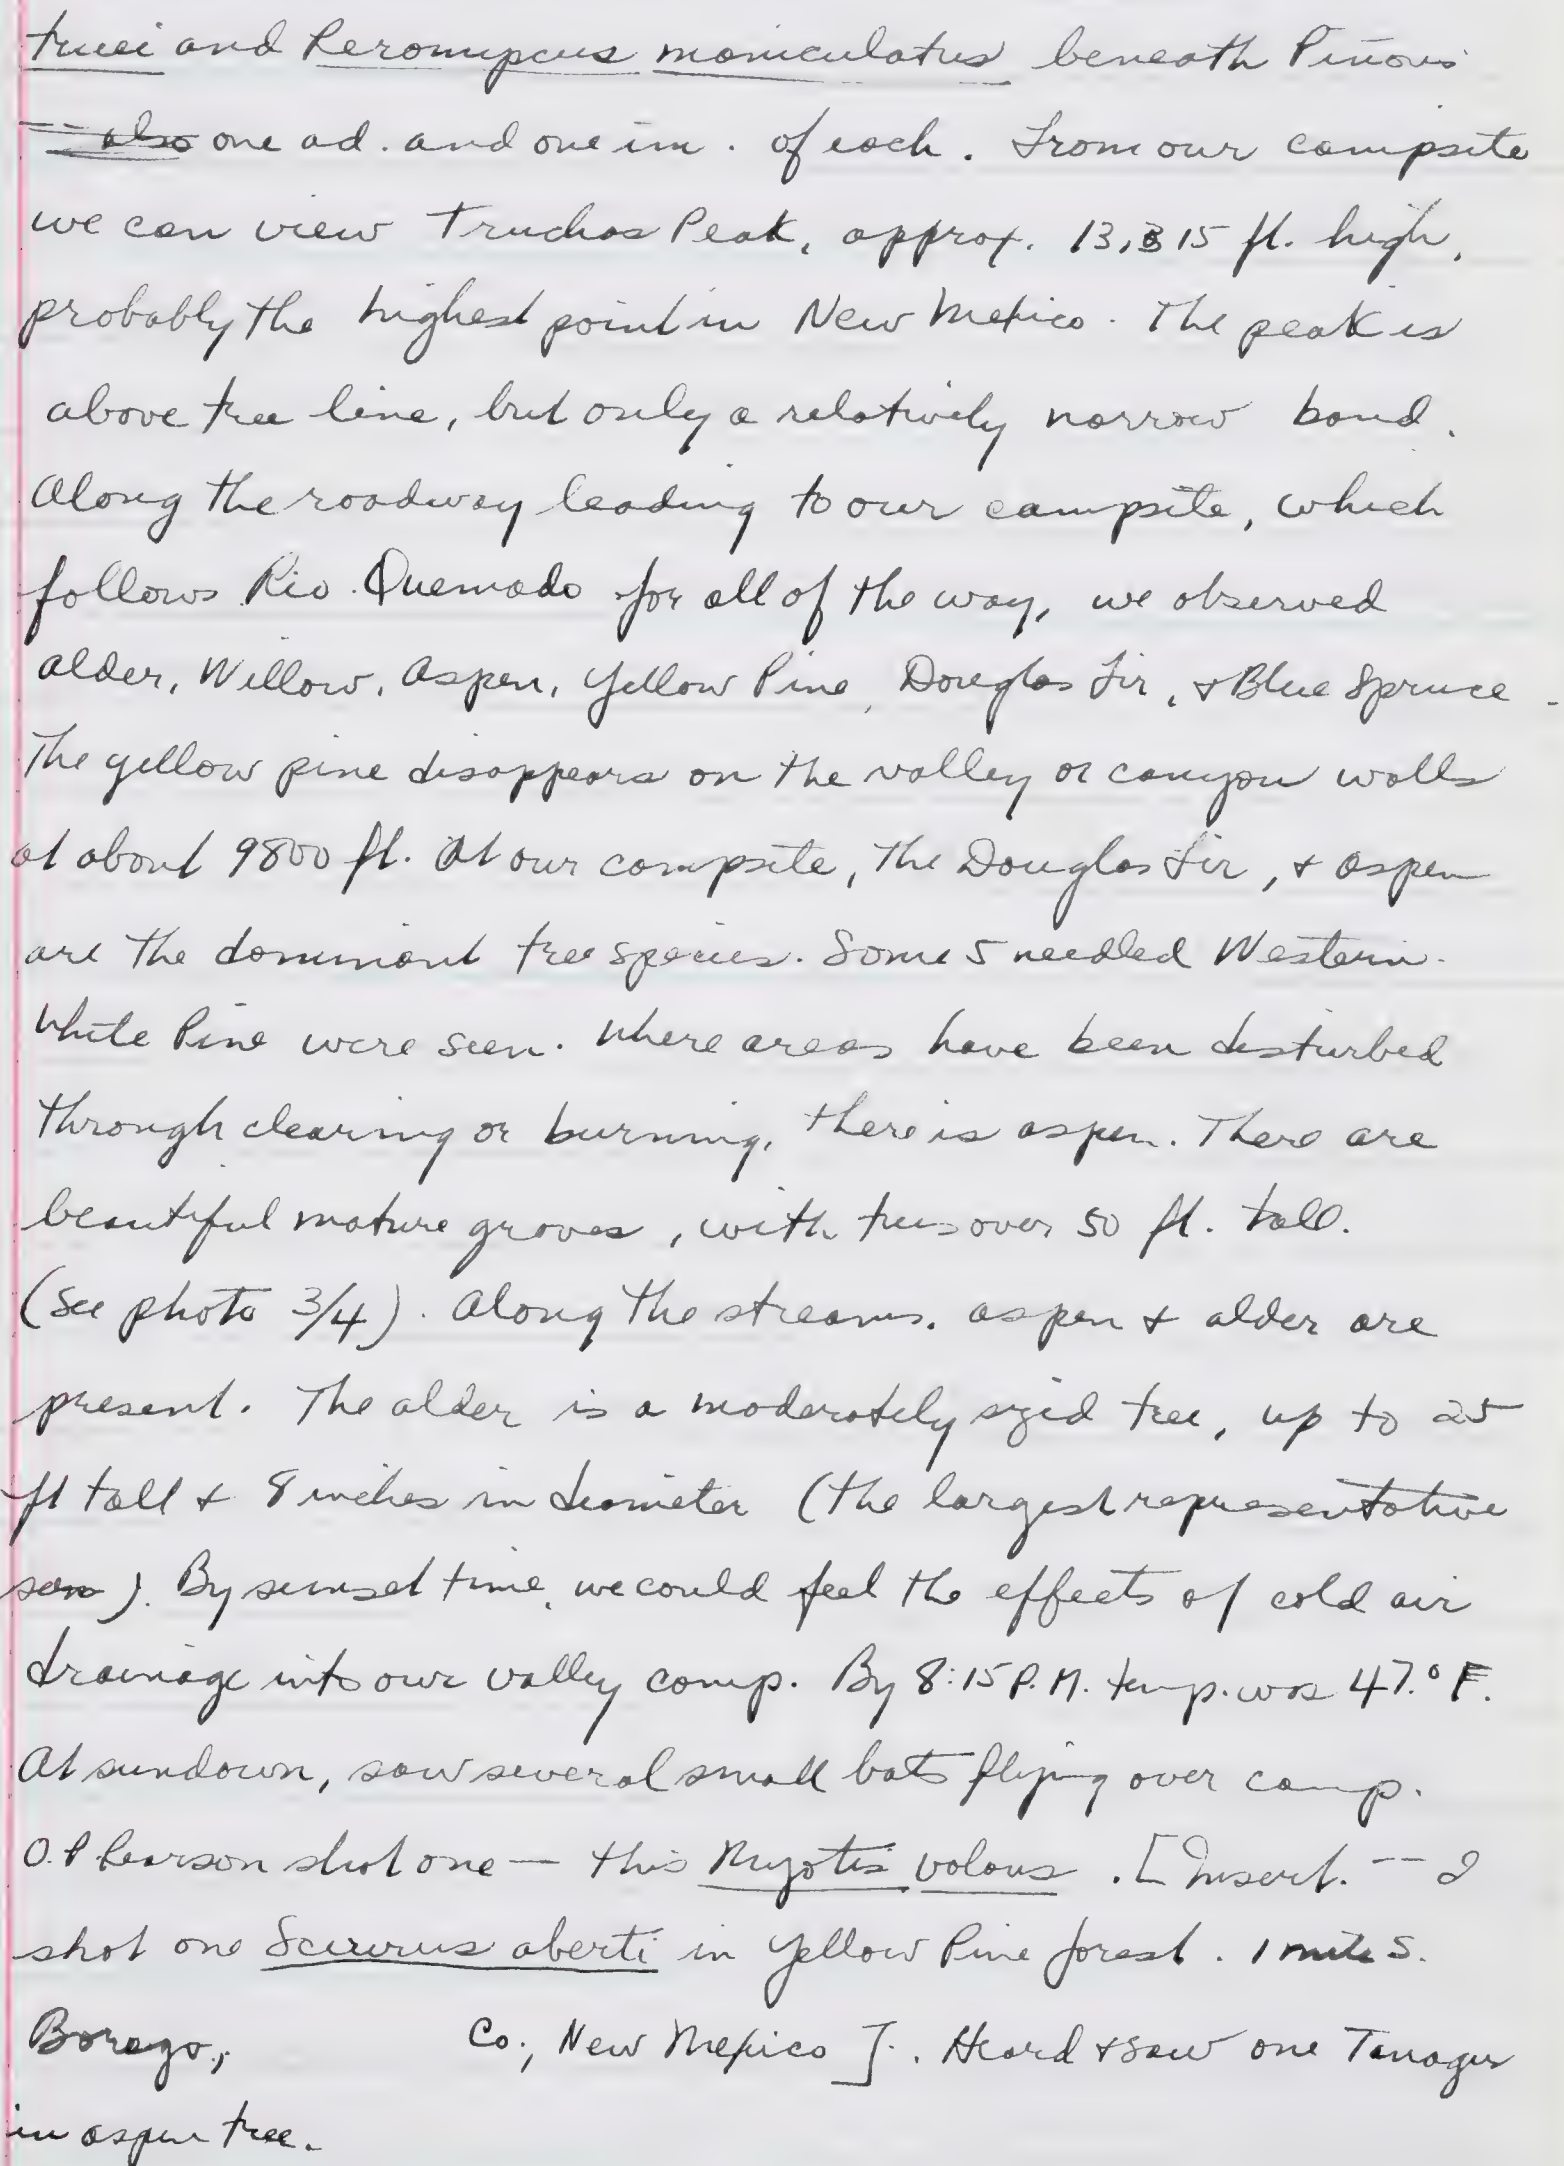 truei and Peromyscus maniculatus beneath Piñons
-- also one ad. and one im. of each. From our campsite
we can view Truchas Peak, approx. 13,315 ft. high,
probably the highest point in New Mexico. The peak is
above tree line, but only a relatively narrow band.
Along the roadway leading to our campsite, which
follows Rio Quemado for all of the way, we observed
alder, Willow, Aspen, Yellow Pine, Douglas Fir, & Blue Spruce.
The yellow pine disappears on the valley or canyon walls
at about 9800 ft. At our campsite, the Douglas Fir, & aspen
are the dominant tree species. Some 5 needled Western
White Pine were seen. Where areas have been disturbed
through clearing or burning, there is aspen. There are
beautiful mature groves, with trees over 50 ft. tall.
(see photo 3/4). Along the streams, aspen & alder are
present. The alder is a moderately sized tree, up to 25
ft tall & 8 inches in diameter (the largest representative
seen). By sunset time, we could feel the effects of cold air
drainage into our valley camp. By 8:15 P.M. temp. was 47.° F.
At sundown, saw several small bats flying over camp.
O.P. Pearson shot one — this Myotis volans. [Insert. -- I
shot one Sciurus aberti in Yellow Pine forest. 1 mile S.
Borego, Co., New Mexico]. Heard & saw one Tanager
in aspen tree.